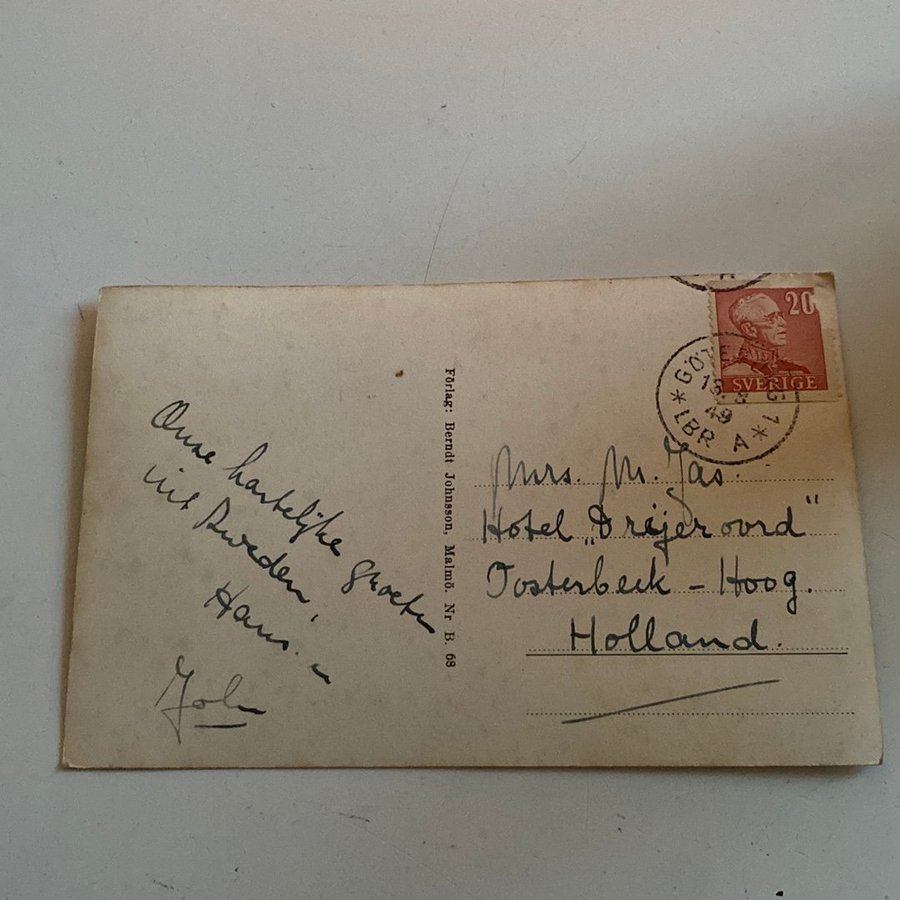 Onze hartelijke groeten
uit Sweden,
Hans. -
Joh
Förlag: Berndt Johnsson, Malmö. Nr B. 68
20
SVERIGE
GÖTEBORG 1
49
LBR A
Mrs. M. Jas.
Hotel „Dreijeroord"
Oosterbeek - Hoog.
Holland.